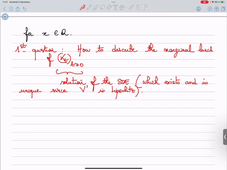 for x ∈ ℝ.
1st question : How to discute the marginal law
of (Xt)t≥0
solution of the SDE (which exists and is
unique since V' is lipschitz).